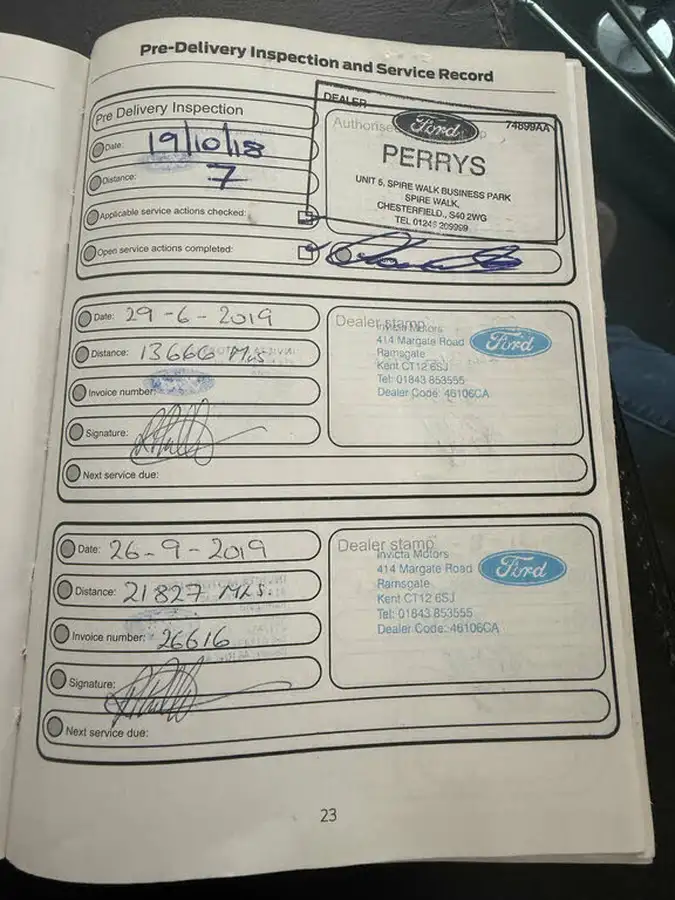 Pre-Delivery Inspection and Service Record
Pre Delivery Inspection
Date: 19/10/18
Distance: 7
Applicable service actions checked:
Open service actions completed:
DEALER
Authorised
Ford
74899AA
PERRYS
UNIT 5, SPIRE WALK BUSINESS PARK
SPIRE WALK,
CHESTERFIELD., S40 2WG
TEL 01246 209999
Date: 29-6-2019
Distance: 13666 Mls
Invoice number:
Signature:
Next service due:
Dealer stamp
Invicta Motors
414 Margate Road
Ramsgate
Kent CT12 6SJ
Tel: 01843 853555
Dealer Code: 46106CA
Ford
Date: 26-9-2019
Distance: 21827 Mls.
Invoice number: 26616
Signature:
Next service due:
Dealer stamp
Invicta Motors
414 Margate Road
Ramsgate
Kent CT12 6SJ
Tel: 01843 853555
Dealer Code: 46106CA
Ford
23